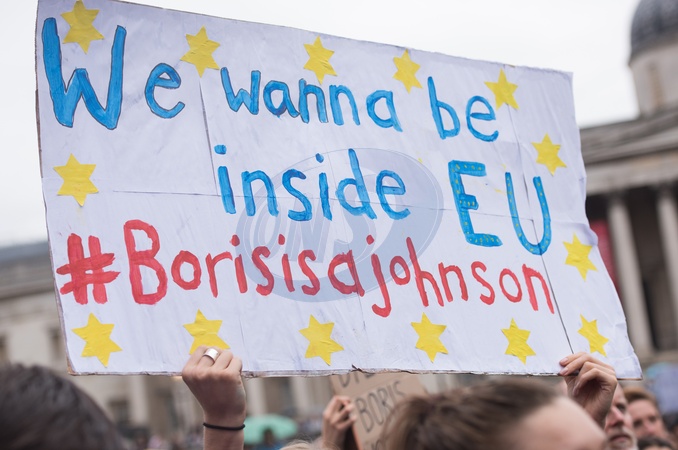 We wanna be
inside EU
#Borisisajohnson
BORIS